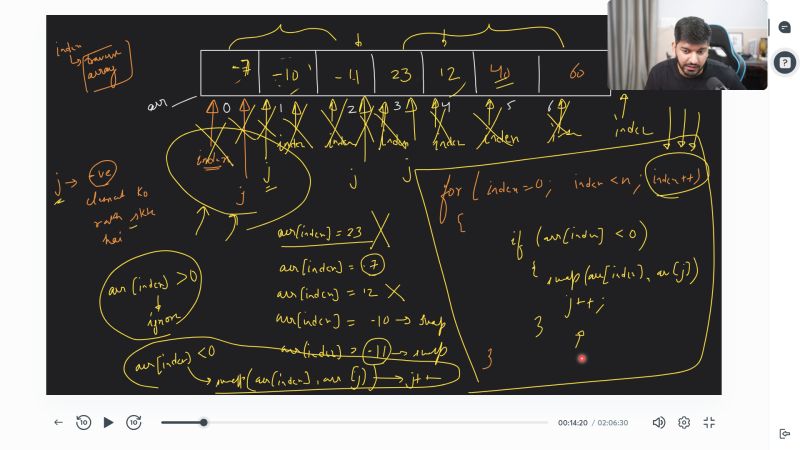 index
traverse
array
arr
-7 -10 -11 23 12 40 60
0 1 2 3 4 5 6
index index index index index index index
j j j j
j → -ve
element ko
rakh skte
hai
arr[index] > 0
ignore
arr[index] < 0
swap(arr[index], arr[j]) → j++
arr[index] = 23
arr[index] = -7
arr[index] = 12
arr[index] = -10 → swap
arr[index] = -11 → swap
for (index=0; index<n; index++)
{
if (arr[index] < 0)
{ swap(arr[index], arr[j])
j++;
}
}
10 10
00:14:20 / 02:06:30